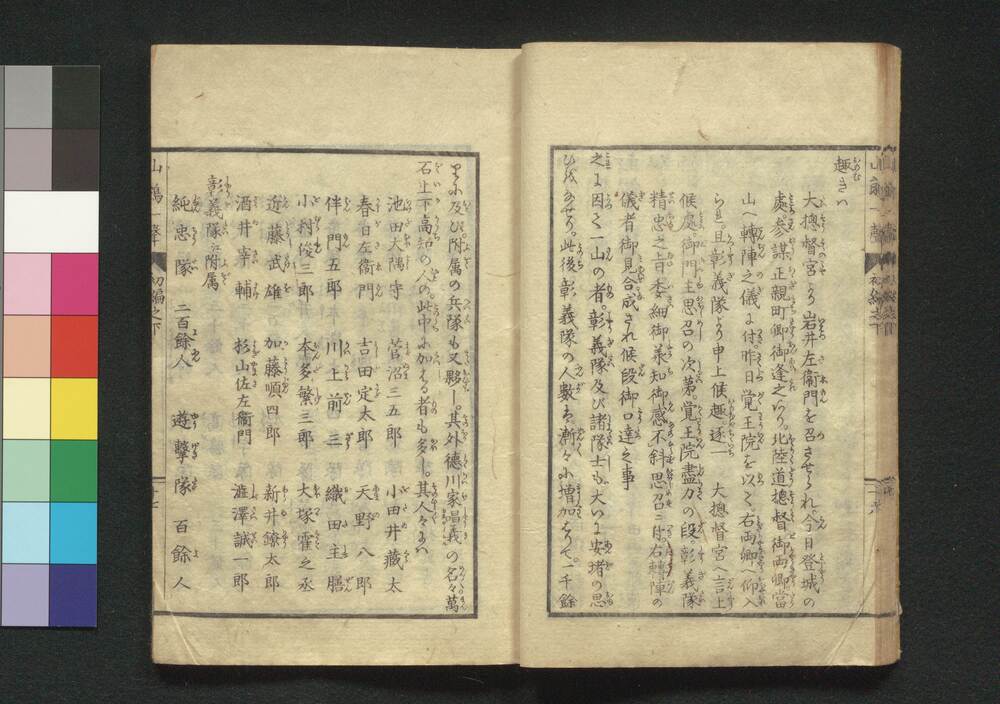 趣きハ
大揔督宮ゟ岩井左衞門を召させられ。今日登城の
處参謀正親町卿御逢之上。北陸道揔督御両卿當
山へ轉陣之儀に付。昨日覚王院を以て右両卿へ仰入
られ。且彰義隊ゟ申上候趣。逐一 大揔督宮へ言上
候處。御門主思召の次第。覚王院盡力の段。彰義隊
精忠之旨委細御承知御感不斜思召に付右轉陣の
儀者御見合成され候段御口達之事
之に因て一山の者。彰義隊及び諸隊士も。大いに安堵の思
ひをなせり。此後彰義隊の人數は。漸々に増加はりて。一千餘
里に及び。附属の兵隊も又夥し。其外德川家昌義の名々萬
石止下高知の人の。此中に加はる者も多し。其人々にハ
池田大隅守 菅沼三五郎 小田井藏太
春日左衞門 吉田定太郎 天野八郎
伴門五郎 川上前三 織田主膳
小村俊三郎 本多繁三郎 大塚霍之丞
近藤武雄 加藤順四郎 新井鐐太郎
酒井宰輔 杉山佐左衞門 漄澤誠一郎
彰義隊に附属
純忠隊 二百餘人 遊擊隊 百餘人
初編之下